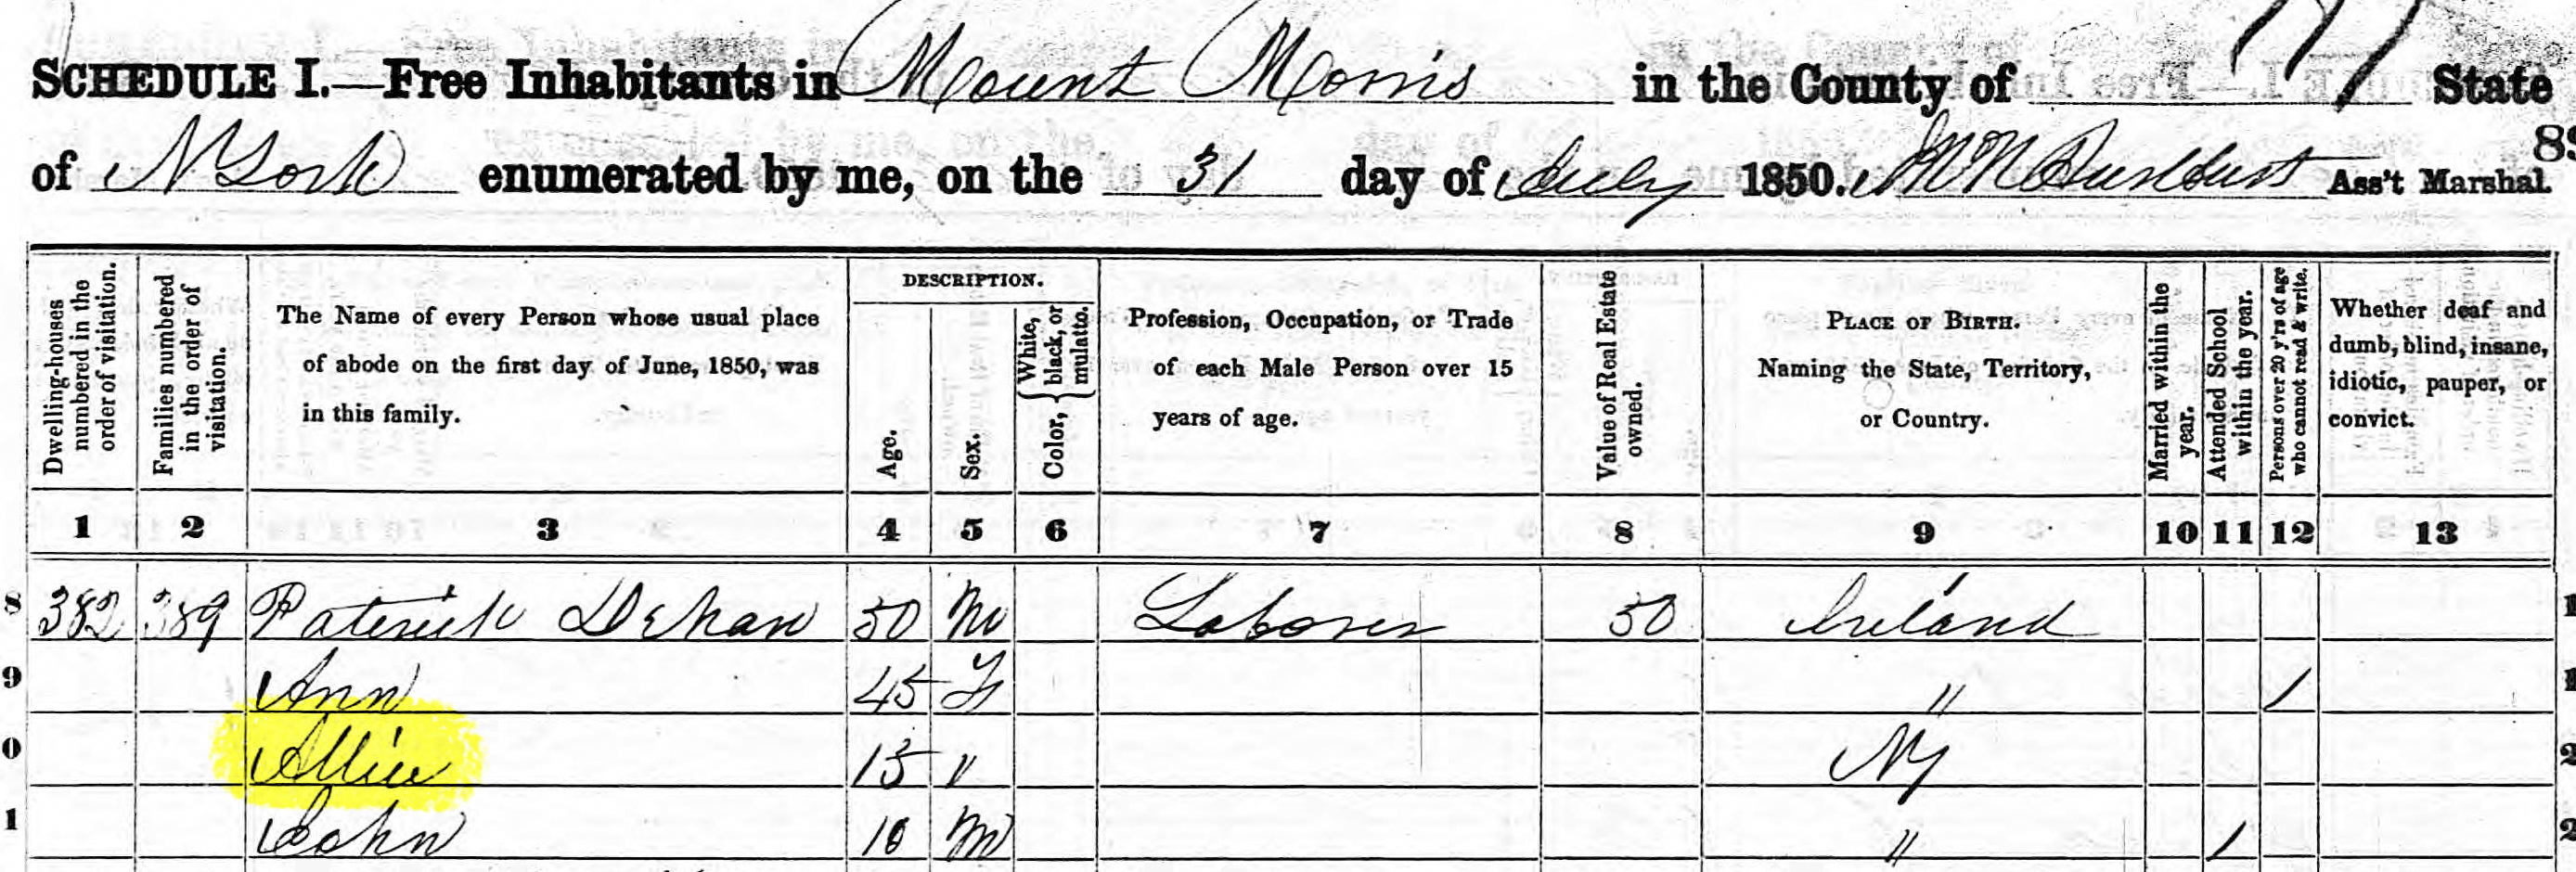 SCHEDULE I.—Free Inhabitants in Mount Morris in the County of State
of N York enumerated by me, on the 31 day of July 1850. Ass't Marshal.
Dwelling-houses numbered in the order of visitation.
Families numbered in the order of visitation.
The Name of every Person whose usual place of abode on the first day of June, 1850, was in this family.
DESCRIPTION.
Age.
Sex.
Color, { White, black, or mulatto.
Profession, Occupation, or Trade of each Male Person over 15 years of age.
Value of Real Estate owned.
PLACE OF BIRTH. Naming the State, Territory, or Country.
Married within the year.
Attended School within the year.
Persons over 20 y'rs of age who cannot read & write.
Whether deaf and dumb, blind, insane, idiotic, pauper, or convict.
1 2 3 4 5 6 7 8 9 10 11 12 13
8 382 389 Patrick Dehan 50 M Laborer 50 Ireland 1
9 Ann 45 F " / 1
0 Allice 15 " NY 2
1 John 10 M " / 2